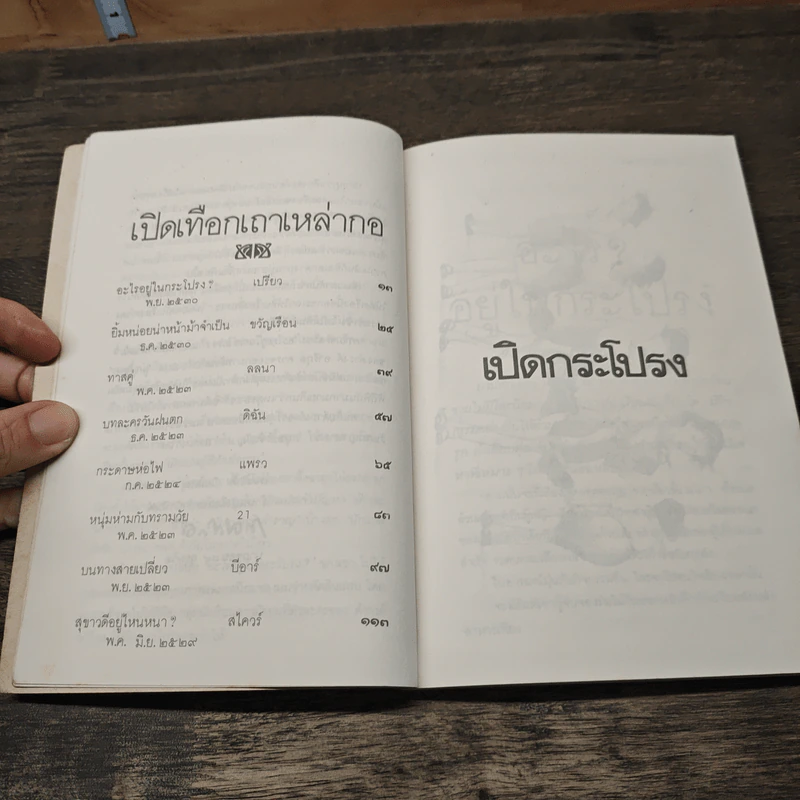 เปิดเทือกเถาเหล่ากอ
อะไรอยู่ในกระโปรง ? เปรียว ๑๓
พ.ย. ๒๕๓๐
ยิ้มหน่อยน่าหน้าม้าจำเป็น ขวัญเรือน ๒๕
ธ.ค. ๒๕๓๐
ทาสคู่ ลลนา ๓๙
พ.ค. ๒๕๒๓
บทละครวันฝนตก ดิฉัน ๕๗
ธ.ค. ๒๕๒๓
กระดาษห่อไฟ แพรว ๖๕
ก.ค. ๒๕๒๔
หนุ่มห่ามกับทรามวัย 21 ๘๓
พ.ค. ๒๕๒๓
บนทางสายเปลี่ยว บีอาร์ ๙๗
พ.ย. ๒๕๒๓
สุขาวดีอยู่ไหนหนา ? สไควร์ ๑๑๓
พ.ค. มิ.ย. ๒๕๒๙
อยู่ในกระโปรง
เปิดกระโปรง